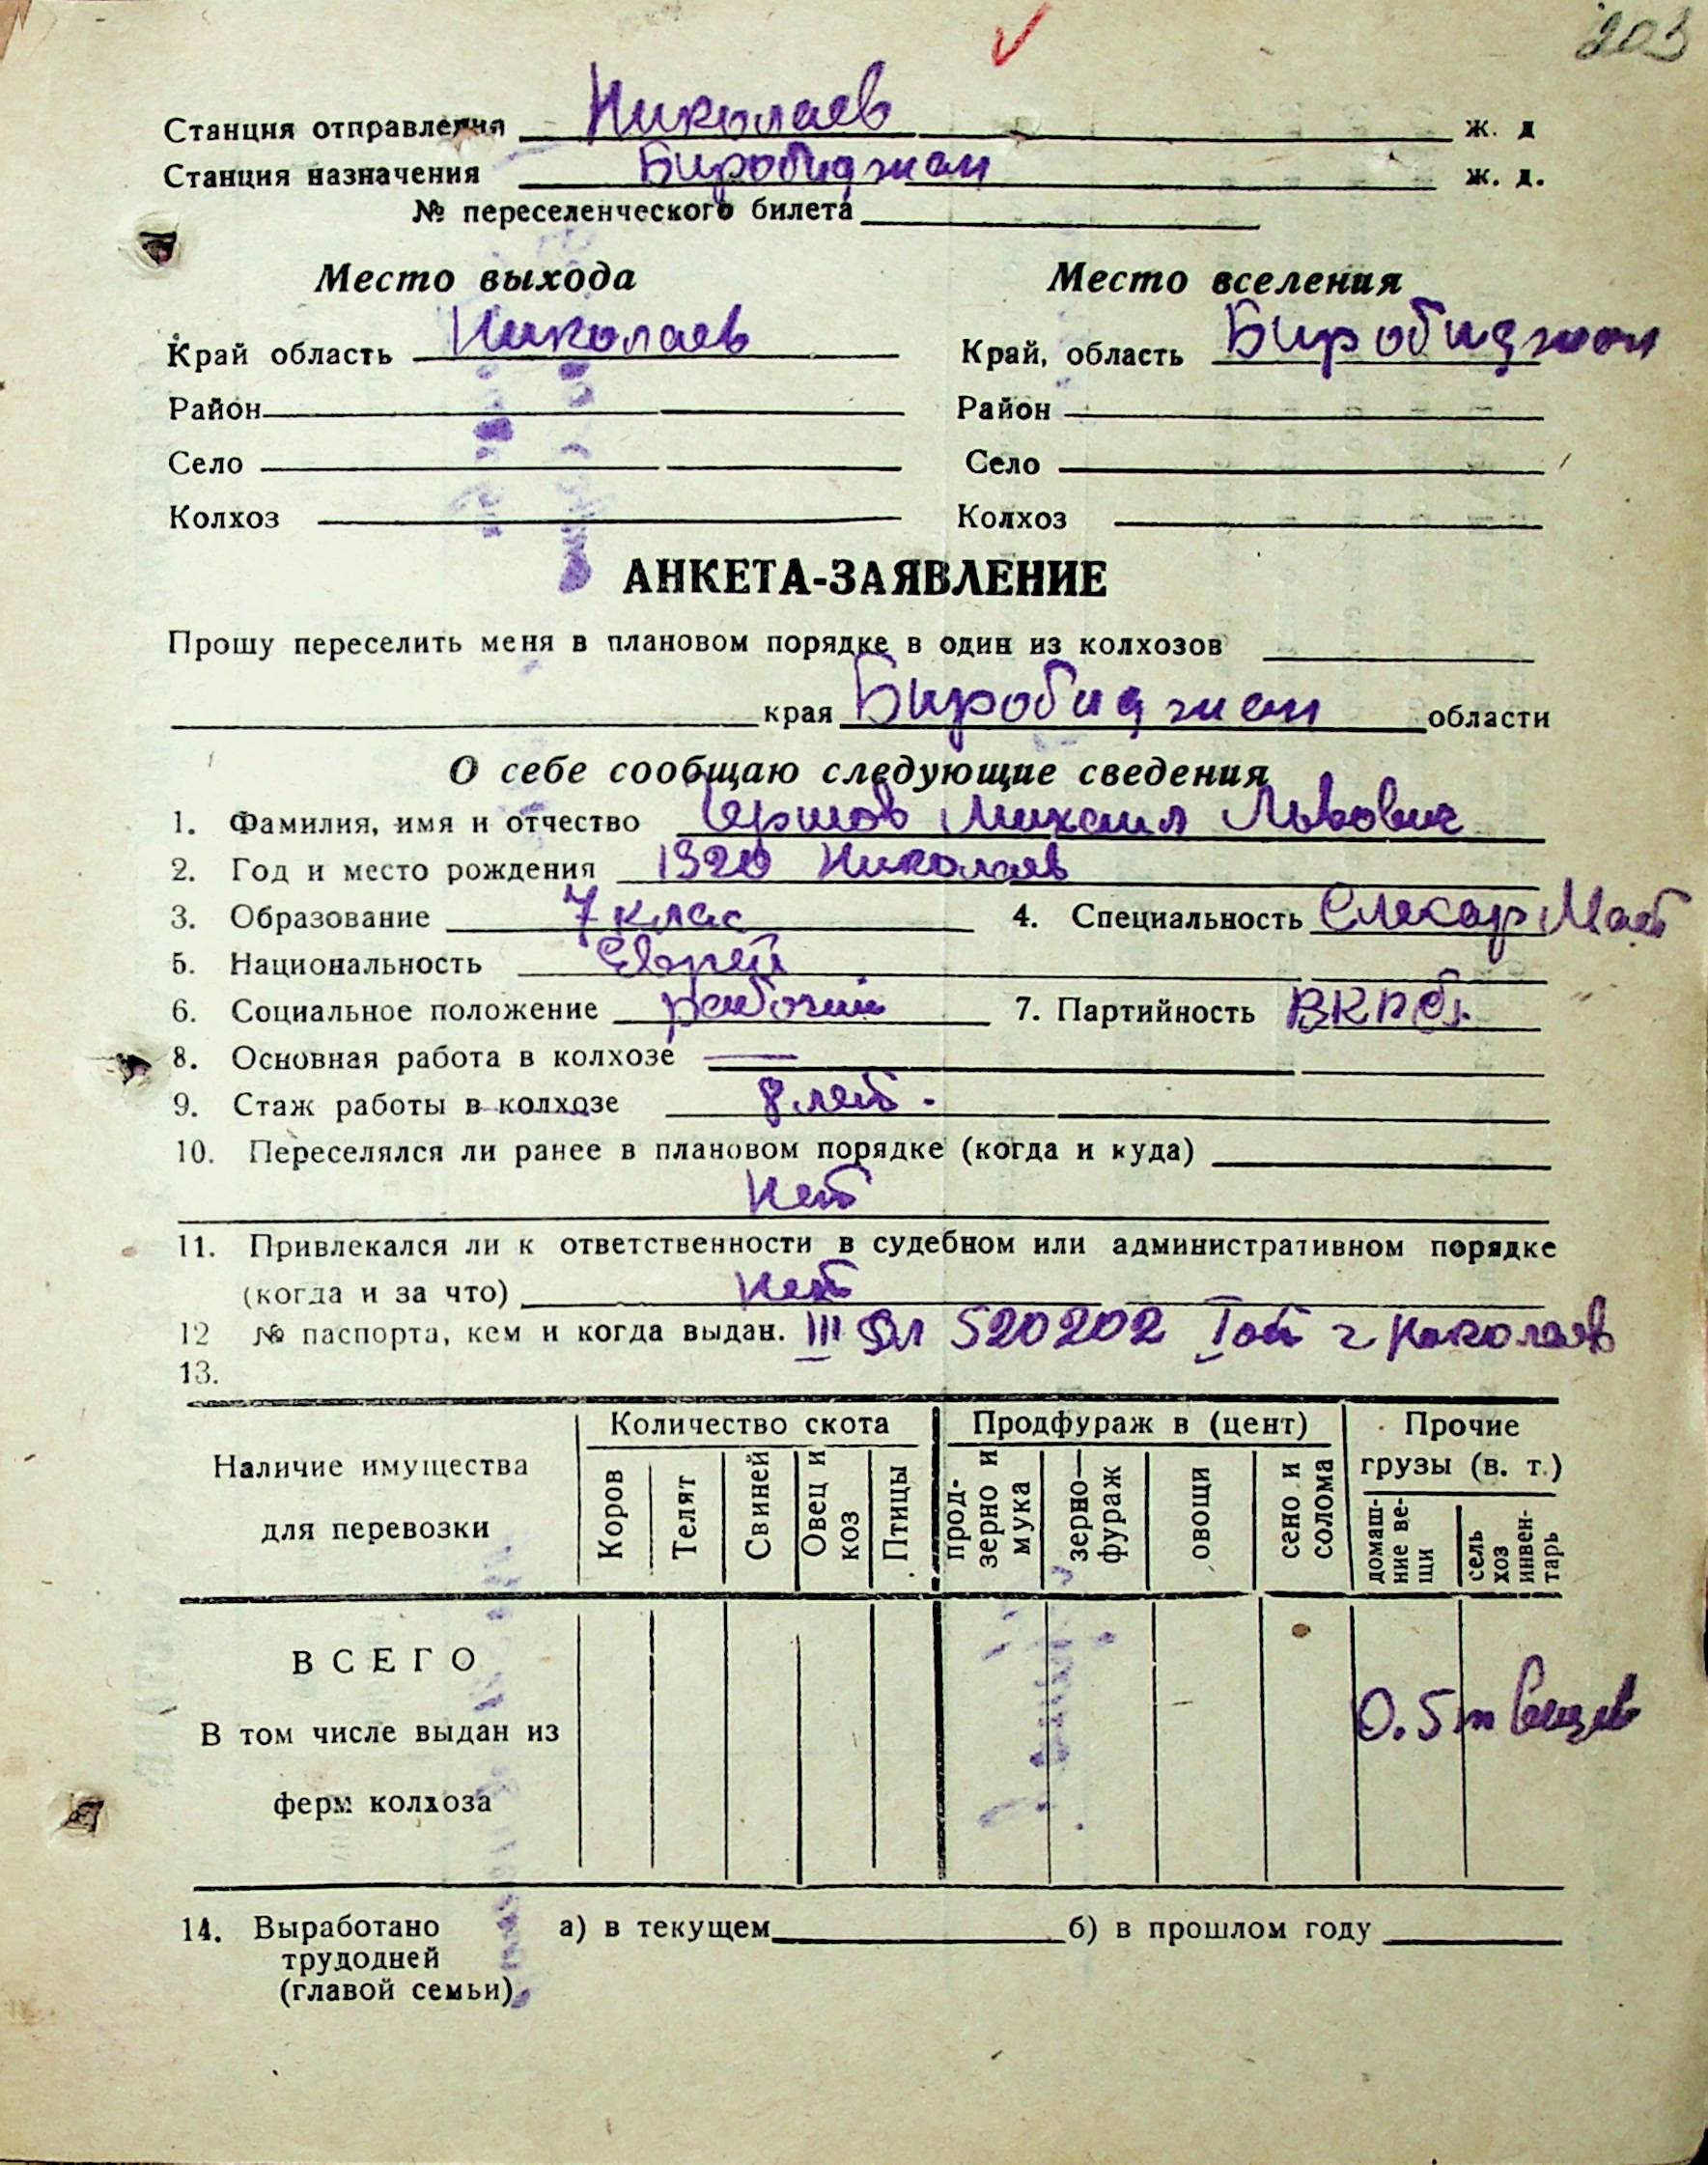 203
Станция отправления Николаев ж. д
Станция назначения Биробиджан ж. д.
№ переселенческого билета
Место выхода Место вселения
Край область Николаев Край, область Биробиджан
Район Район
Село Село
Колхоз Колхоз
АНКЕТА-ЗАЯВЛЕНИЕ
Прошу переселить меня в плановом порядке в один из колхозов
края Биробиджан области
О себе сообщаю следующие сведения
1. Фамилия, имя и отчество Михаил Львович
2. Год и место рождения 1920 Николаев
3. Образование 7 клас 4. Специальность Слесар
5. Национальность Еврей
6. Социальное положение рабочий 7. Партийность ВКПб.
8. Основная работа в колхозе —
9. Стаж работы в колхозе 8 лет.
10. Переселялся ли ранее в плановом порядке (когда и куда)
Нет
11. Привлекался ли к ответственности в судебном или административном порядке
(когда и за что) Нет
12 № паспорта, кем и когда выдан. III 520202 г Николаев
13.
Наличие имущества для перевозки
Количество скота
Коров
Телят
Свиней
Овец и коз
Птицы
Продфураж в (цент)
прод-зерно и мука
зерно—фураж
овощи
сено и солома
Прочие грузы (в. т.)
домаш-ние ве-щи
сель хоз инвен-тарь
ВСЕГО
В том числе выдан из 0.5 т вещей
ферм колхоза
14. Выработано а) в текущем б) в прошлом году
трудодней
(главой семьи)